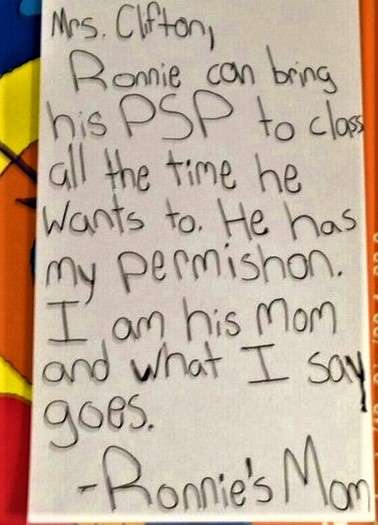 Mrs. Clifton,
Ronnie can bring
his PSP to class
all the time he
wants to. He has
my permishon.
I am his Mom
and what I say
goes.
-Ronnie's Mom